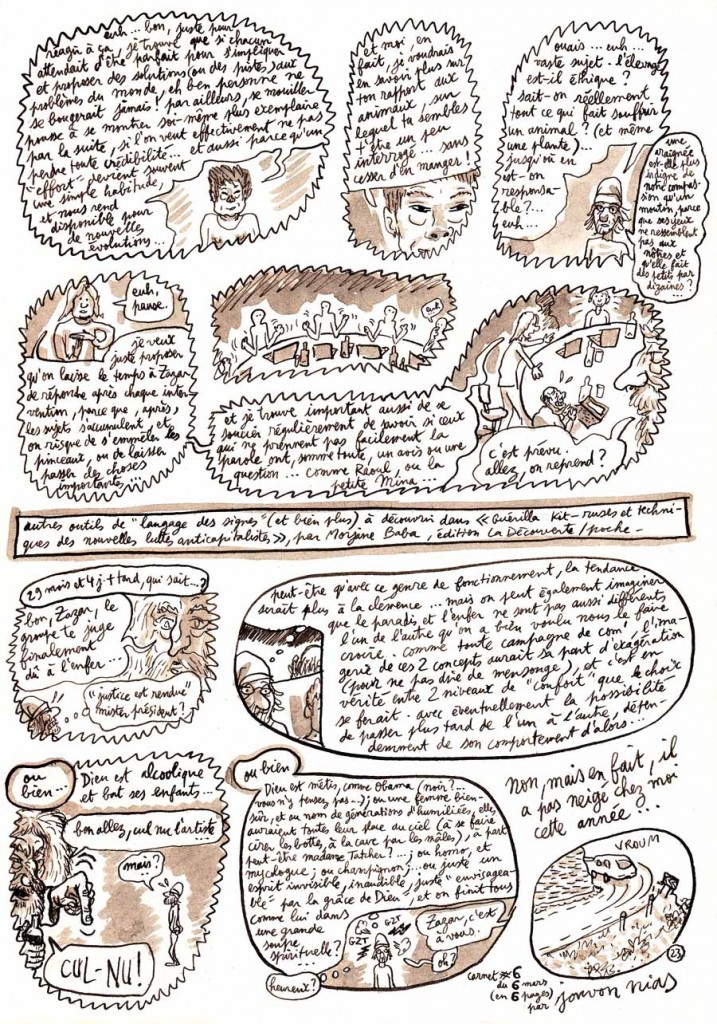 euh... bon, juste pour
réagir à ça, je trouve que si chacun
attendait d'être parfait pour s'impliquer
et proposer des solutions (ou des pistes) aux
problèmes du monde, eh ben personne ne
se bougerait jamais! par ailleurs, se mouiller
pousse à se montrer soi-même plus exemplaire
par la suite, si l'on veut effectivement ne pas
perdre toute crédibilité... et aussi parce qu'un
"effort" devient souvent
une simple habitude,
et nous rend
disponible pour
de nouvelles
évolutions...
et moi, en
fait, je voudrais
en savoir plus sur
ton rapport aux
animaux, sur
lequel tu sembles
t'être un peu
interrogé... sans
cesser d'en manger!
ouais... euh...
vaste sujet. l'élevage
est-il éthique?
sait-on réellement
tout ce qui fait souffrir
un animal? (et même
une plante)...
jusqu'où en
est-on
responsa-
ble?...
euh...
une
araignée
est-elle plus
indigne de
notre compas-
sion qu'un
mouton, parce
que ses yeux
ne ressemblent
pas aux
nôtres et
qu'elle fait
des petits par
dizaines?
euh,
pause.
je veux
juste proposer
qu'on laisse le temps à Zazar
de répondre après chaque inter-
vention, parce que, après,
les sujets s'accumulent, et
on risque de s'emmêler les
pinceaux, ou de laisser
passer des choses
importantes...
et je trouve important aussi de se
soucier régulièrement de savoir si ceux
qui ne prennent pas facilement la
parole ont, somme toute, un avis ou une
question... comme Raoul, ou la
petite Mina...
c'est prévu.
allez, on reprend?
autres outils de "langage des signes" (et bien plus) à découvrir dans «Guérilla Kit - ruses et techni-
ques des nouvelles luttes anticapitalistes», par Morjane Baba, édition La Découverte/poche-
29 mois et 4j + tard, qui sait...?
bon, Zazar, le
groupe te juge
finalement
dû à l'enfer...
("justice est rendue"
mister président?)
peut-être qu'avec ce genre de fonctionnement, la tendance
serait plus à la clémence... mais on peut également imaginer
que le paradis et l'enfer ne sont pas aussi différents
l'un de l'autre qu'on a bien voulu nous le faire
croire. comme toute campagne de com', l'ima-
gerie de ces 2 concepts aurait sa part d'exagération
(pour ne pas dire de mensonge), et c'est en
vérité entre 2 niveaux de "confort" que le choix
se ferait - avec éventuellement la possibilité
de passer plus tard de l'un à l'autre, dépen-
demment de son comportement d'alors...
ou
bien...
Dieu est alcoolique
et bat ses enfants...
bon allez, cul nu l'artiste
mais?
CUL-NU!
ou bien
Dieu est métis, comme Obama (noir?...
vous n'y pensez pas...); ou une femme bien-
sûr, et au nom de générations d'humiliées, elles
auraient toutes leur place au ciel (à se faire
cirer les bottes, à la cave par les mâles), à part
peut-être madame Tatcher?...; ou homo, et
mycologue; ou champignon;... ou juste un
esprit invisible, inaudible, juste "envisagea-
ble" par la grâce de Dieu, et on finit tous
comme lui dans
une grande
soupe
spirituelle?
G2T
G2T
Zazar, c'est
à vous.
oh?
heureux?
non, mais en fait, il
a pas neigé chez moi
cette année...
VROUM
23
carnet #6
du 6 mars
(en 6 pages)
par jouvon nias